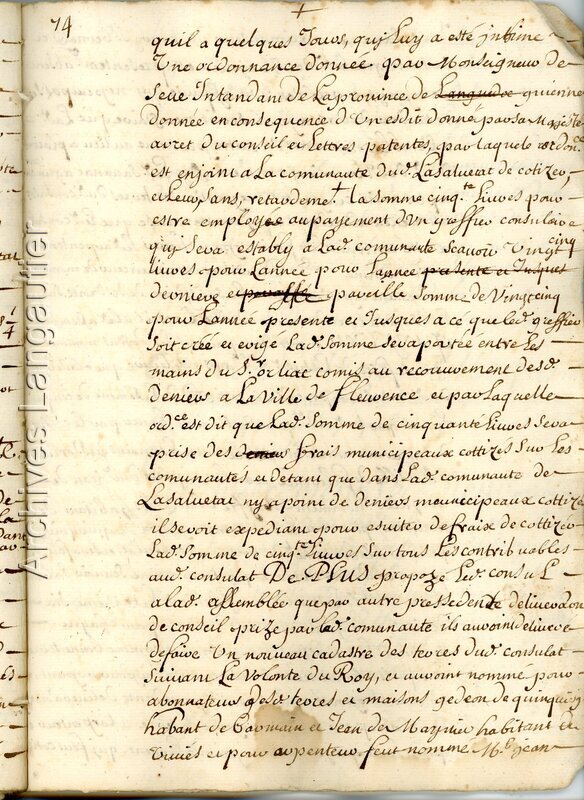 74
quil a quelques Jours, quj luy a esté jntime
Une ordonnance donnée par Monseigneur de
Seve Intandant de La province de Languedoc guienne
donnée en consequence d'Un esdit donné par sa Majesté
arret du conseil et Lettres patentes, par laquele ordon.ce
est enjoint a La comunauté dud. Lasalvetat de cotizer,
et lever, sans, retardemt. la somme cinq.te Livres pour
estre employée au payement d'Un greffier consulaire
quj sera estably a Lad. comunauté scavoir Vingt cinq
livres pour Lannée pour Lannée presente et Jusques
derniere et pareille somme de Vingt cinq
pour Lanneé presente et Jusques a ce que led. greffier
soit creé et erigé Lad. somme sera portée entre Les
mains du S.r orliac comis au recouvrement desd.
deniers a La Ville de fleurence et par Laquelle
ord.ce est dit que Lad. somme de cinquante Livres sera
prise des deniers frais municipeaux cottizes sur Les
comunautés et detant que dans Lad. comunauté de
Lasalvetat ny a point de deniers meunicipeaux cottizé
il seroit expediant pour esviter de fraix de cottizer
Lad. somme de cinq.te Livres sur tous Les contribuables
aud. consulat De PLUS propoze Led. consul
a lad. assemblée que par autre pressedente deliveraon
de conseil prize par lad. comunauté ils auroint delivere
de faire Un nouveau cadastre des terres dud. consulat
suivant La Volonte du Roy, et auroint nommé pour
abonnateurs desd. terres et maisons gedeon de quinquiry
habant de Caomain et Jean de Maynier habitant de
Vivies et pour arpenteur feut nomme M.e jean
Archives Langautier